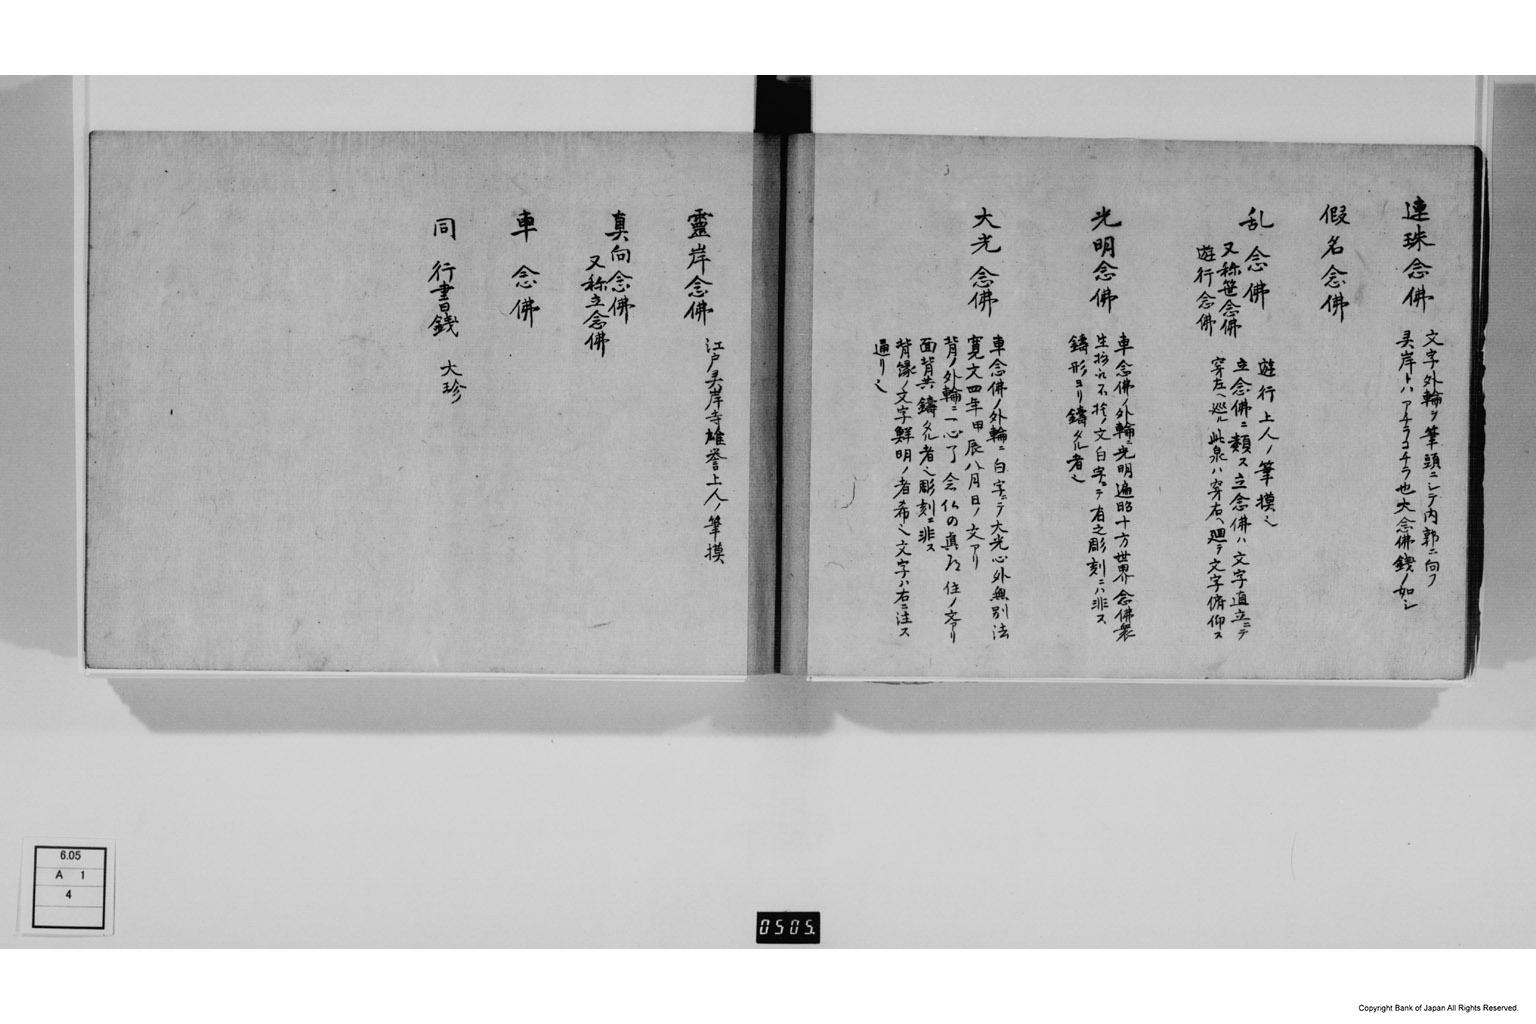 連珠念佛
文字外輪ヲ筆頭ニシテ内郭ニ向フ
灵岸トハアチラコチラ也大念佛錢ノ如シ
假名念佛
乱念佛
又称笹念佛
遊行念佛
遊行上人ノ筆摸也
立念佛ニ類ス立念佛ハ文字直立ニテ
穿左ヘ巡ル此泉ハ穿右ヘ廻テ文字俯仰ス
光明念佛
車念佛ノ外輪ニ光明遍照十方世界念佛衆
生摂取不捨ノ文白字ニテ有之彫刻ニハ非ス
鑄形ヨリ鑄タル者也
大光念佛
車念佛ノ外輪ニ白字ニテ大光心外無別法
寛文四年甲辰八月日ノ文アリ
背ノ外輪ニ一心了念仏の真
住ノ文アリ
面背共鑄タル者也彫刻ニ非ス
背縁ノ文字鮮明ノ者希也文字ハ右ニ注ス
通リ也
靈岸念佛
江戸灵岸寺雄誉上人ノ筆摸
真向念佛
又称立念佛
車念佛
同 行書錢 大珍
6.05
A 1
4
0505.
Copyright Bank of Japan All Rights Reserved.